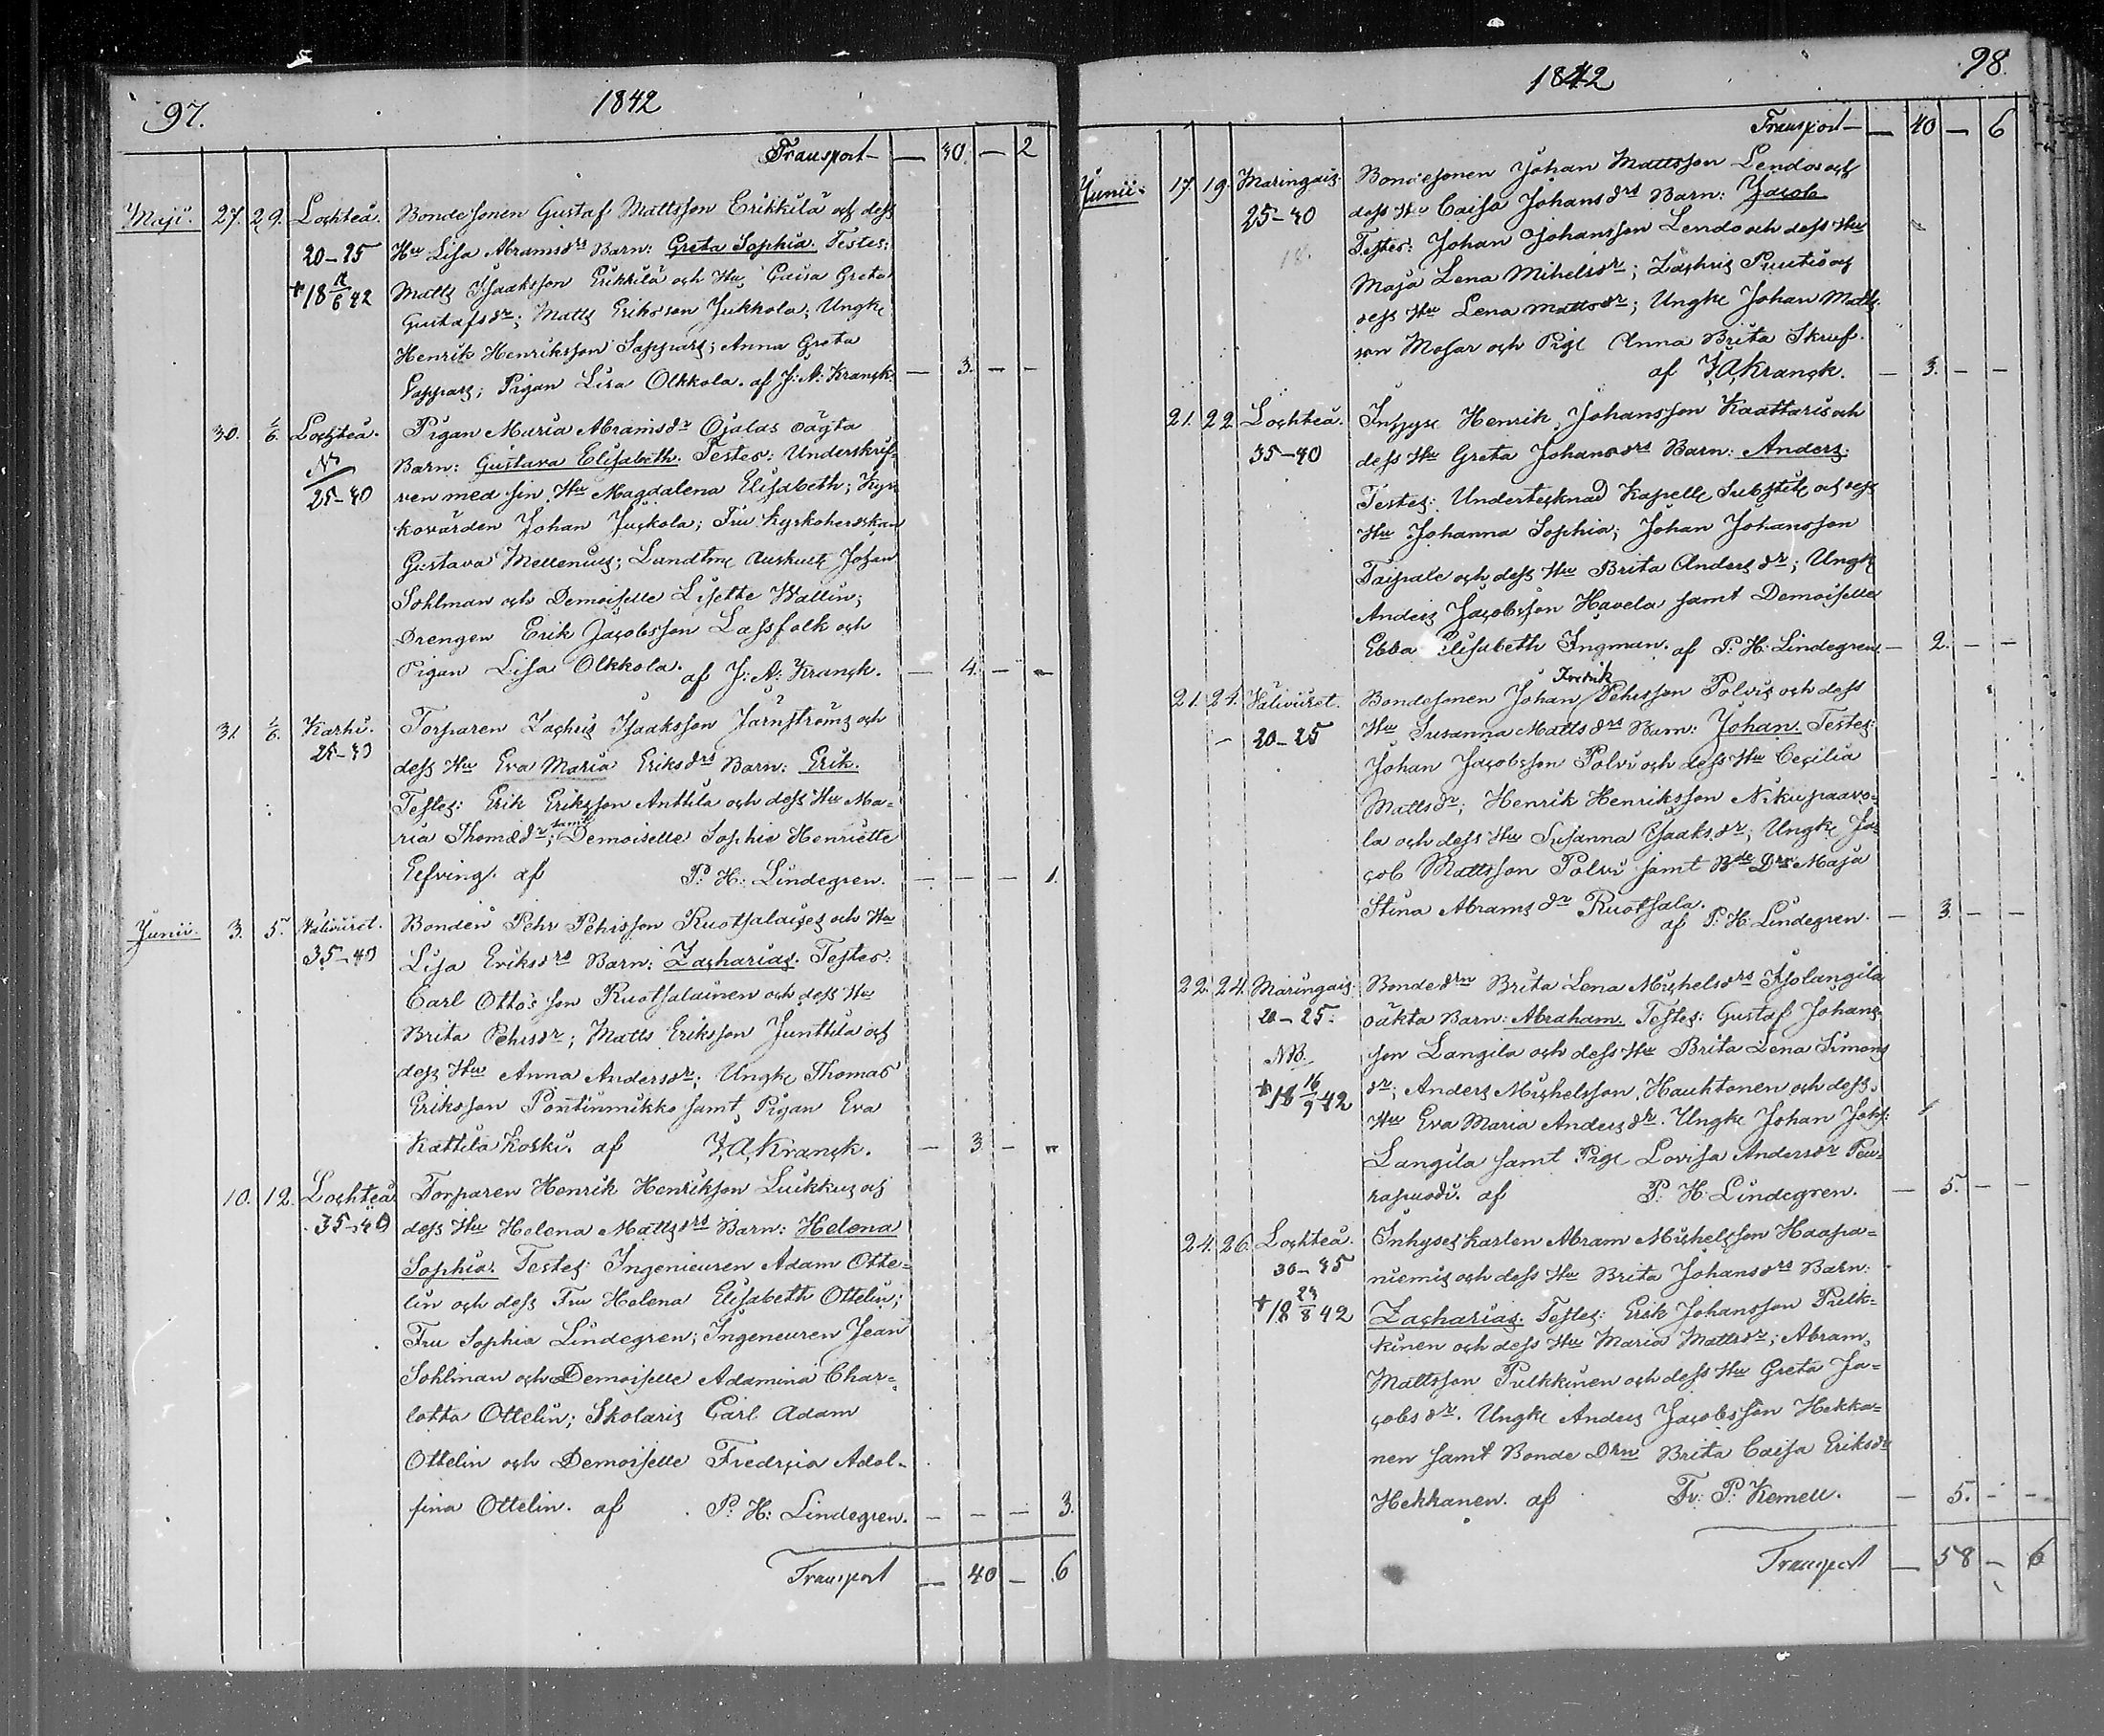 97. 1842
Transport — 30. — 2
Maji. 27. 29. Lochteå. Bondesonen Gustaf Mattsson Erikkilä och dess
20-25 Hu Lisa Abramsdrs Barn: Greta Sophia. Testes:
+18 12/6 42 Matts Isaaksson Erikkilä och Hu Caisa Greta
Gustafsdr; Matts Eriksson Jukkola; Ungk
Henrik Henriksson Sappars; Anna Greta
Sappars; Pigan Lisa Olkkola. af J: A: Kranck. — 3. — —
30. 1/6. Lochteå. Pigan Maria Abramsdr Ojalas oägta
N Barn: Gustava Elisabeth. Testes: Underskrif-
25-40 ven med sin Hu Magdalena Elisabeth; Kyr-
kovärden Johan Juckola; Fru Kyrkoherdskan
Gustava Mellenius; Landtm Auskult Johan
Sohlman och Demoiselle Lisette Wallin;
Drengen Erik Jacobsson Lassfolk och
Pigan Lisa Olkkola. af J: A: Kranck. — 4. — —
31. 1/6. Karhi. Torparen Zachris Isaaksson Jernströms och
25-40 dess Hu Eva Maria Eriksdrs Barn: Erik.
Testes: Erik Eriksson Anttila och dess Hu Ma-
samt
ria Thomædr; Demoiselle Sophie Henriette
Elfving. af P: H: Lindegren. — — — 1.
Junii. 3. 5. Väliviiret. Bonden Pehr Pehrsson Ruotsalaises och Hu
35-40 Lisa Eriksdrs Barn: Zacharias. Testes:
Carl Otto's son Ruotsalainen och dess Hu
Brita Pehrsdr; Matts Eriksson Junttila och
dess Hu Anna Andersdr; Ungk Thomas
Eriksson Pöntinmikko samt Pigan Eva
Kattilakoski. af J. A. Kranck. — 3 — "
10. 12. Lochteå Torparen Henrik Henriksson Luikkus och
35-40 dess Hu Helena Mattsdrs Barn: Helena
Sophia. Testes: Ingenieuren Adam Otte-
lin och dess Fru Helena Elisabeth Ottelin;
Fru Sophia Lindegren; Ingeneuren Jean
Sohlman och Demoiselle Adamina Char-
lotta Ottelin; Skolaris Carl Adam
Ottelin och Demoiselle Fredrica Adol-
fina Ottelin. af P: H: Lindegren. — — — 3.
Transport — 40 — 6
1842 98.
Transport — 40 — 6
Junii. 17. 19. Maringais. Bondesonen Johan Mattsson Lendos och
25-40 dess Hu Caisa Johansdrs Barn: Jacob
18. Testes: Johan Johansson Lendo och dess Hu
Maja Lena Mihelsdr; Zachris Puutio och
dess Hu Lena Mattsdr; Ungk Johan Matts-
son Mosar och Pig Anna Brita Skruf.
af J. A. Kranck. — 3. — —
21. 22 Lochteå. Inhyse Henrik Johansson Kaattaris och
35-40 dess Hu Greta Johansdrs Barn: Anders.
Testes: Undertecknad Kapells Substit och dess
Hu Johanna Sophia; Johan Johansson
Taipale och dess Hu Brita Andersdr; Ungk
Anders Jacobsson Havela samt Demoiselle
Ebba Elisabeth Ingman. af P: H: Lindegren — 2. — —
Fredrik
21. 24. Väliviiret. Bondesonen Johan Pehrsson Polvis och dess
20-25 Hu Susanna Mattsdrs Barn: Johan. Testes:
Johan Jacobsson Polvi och dess Hu Cecilia
Mattsdr; Henrik Henriksson Nikupaavo-
la och dess Hu Susanna Isaaksdr; Ungk Ja-
cob Mattsson Polvi samt Bde Drn Maja
Stina Abramsdr Ruotsala.
af P: H: Lindegren. — 3. — —
22. 24. Maringais. Bondedrn Brita Lena Michelsdrs Isolangila
20-25. oäkta Barn: Abraham. Testes: Gustaf Johans-
NB. son Langila och dess Hu Brita Lena Simons
+18 16/9 42 dr; Anders Michelsson Hauhtonen och dess
Hu Eva Maria Andersdr. Ungk Johan Johs:
Langila samt Pig Lovisa Andersdr Peu-
rasuodi. af P: H: Lindegren. — 5. — —
24. 26. Lochteå. Inhyses karlen Abram Michelsson Haapa-
30-45 niemis och dess Hu Brita Johansdrs Barn:
+18 29/8 42 Zacharias. Testes: Erik Johansson Pulk-
kinen och dess Hu Maria Mattsdr; Abram
Mattsson Pulkkinen och dess Hu Greta Ja-
cobsdr. Ungk Anders Jacobsson Hekka-
nen samt Bonde Drn Brita Caisa Eriksdr
Hekkanen. af Fr: P: Kemell. — 5. — —
Transport — 58 — 6